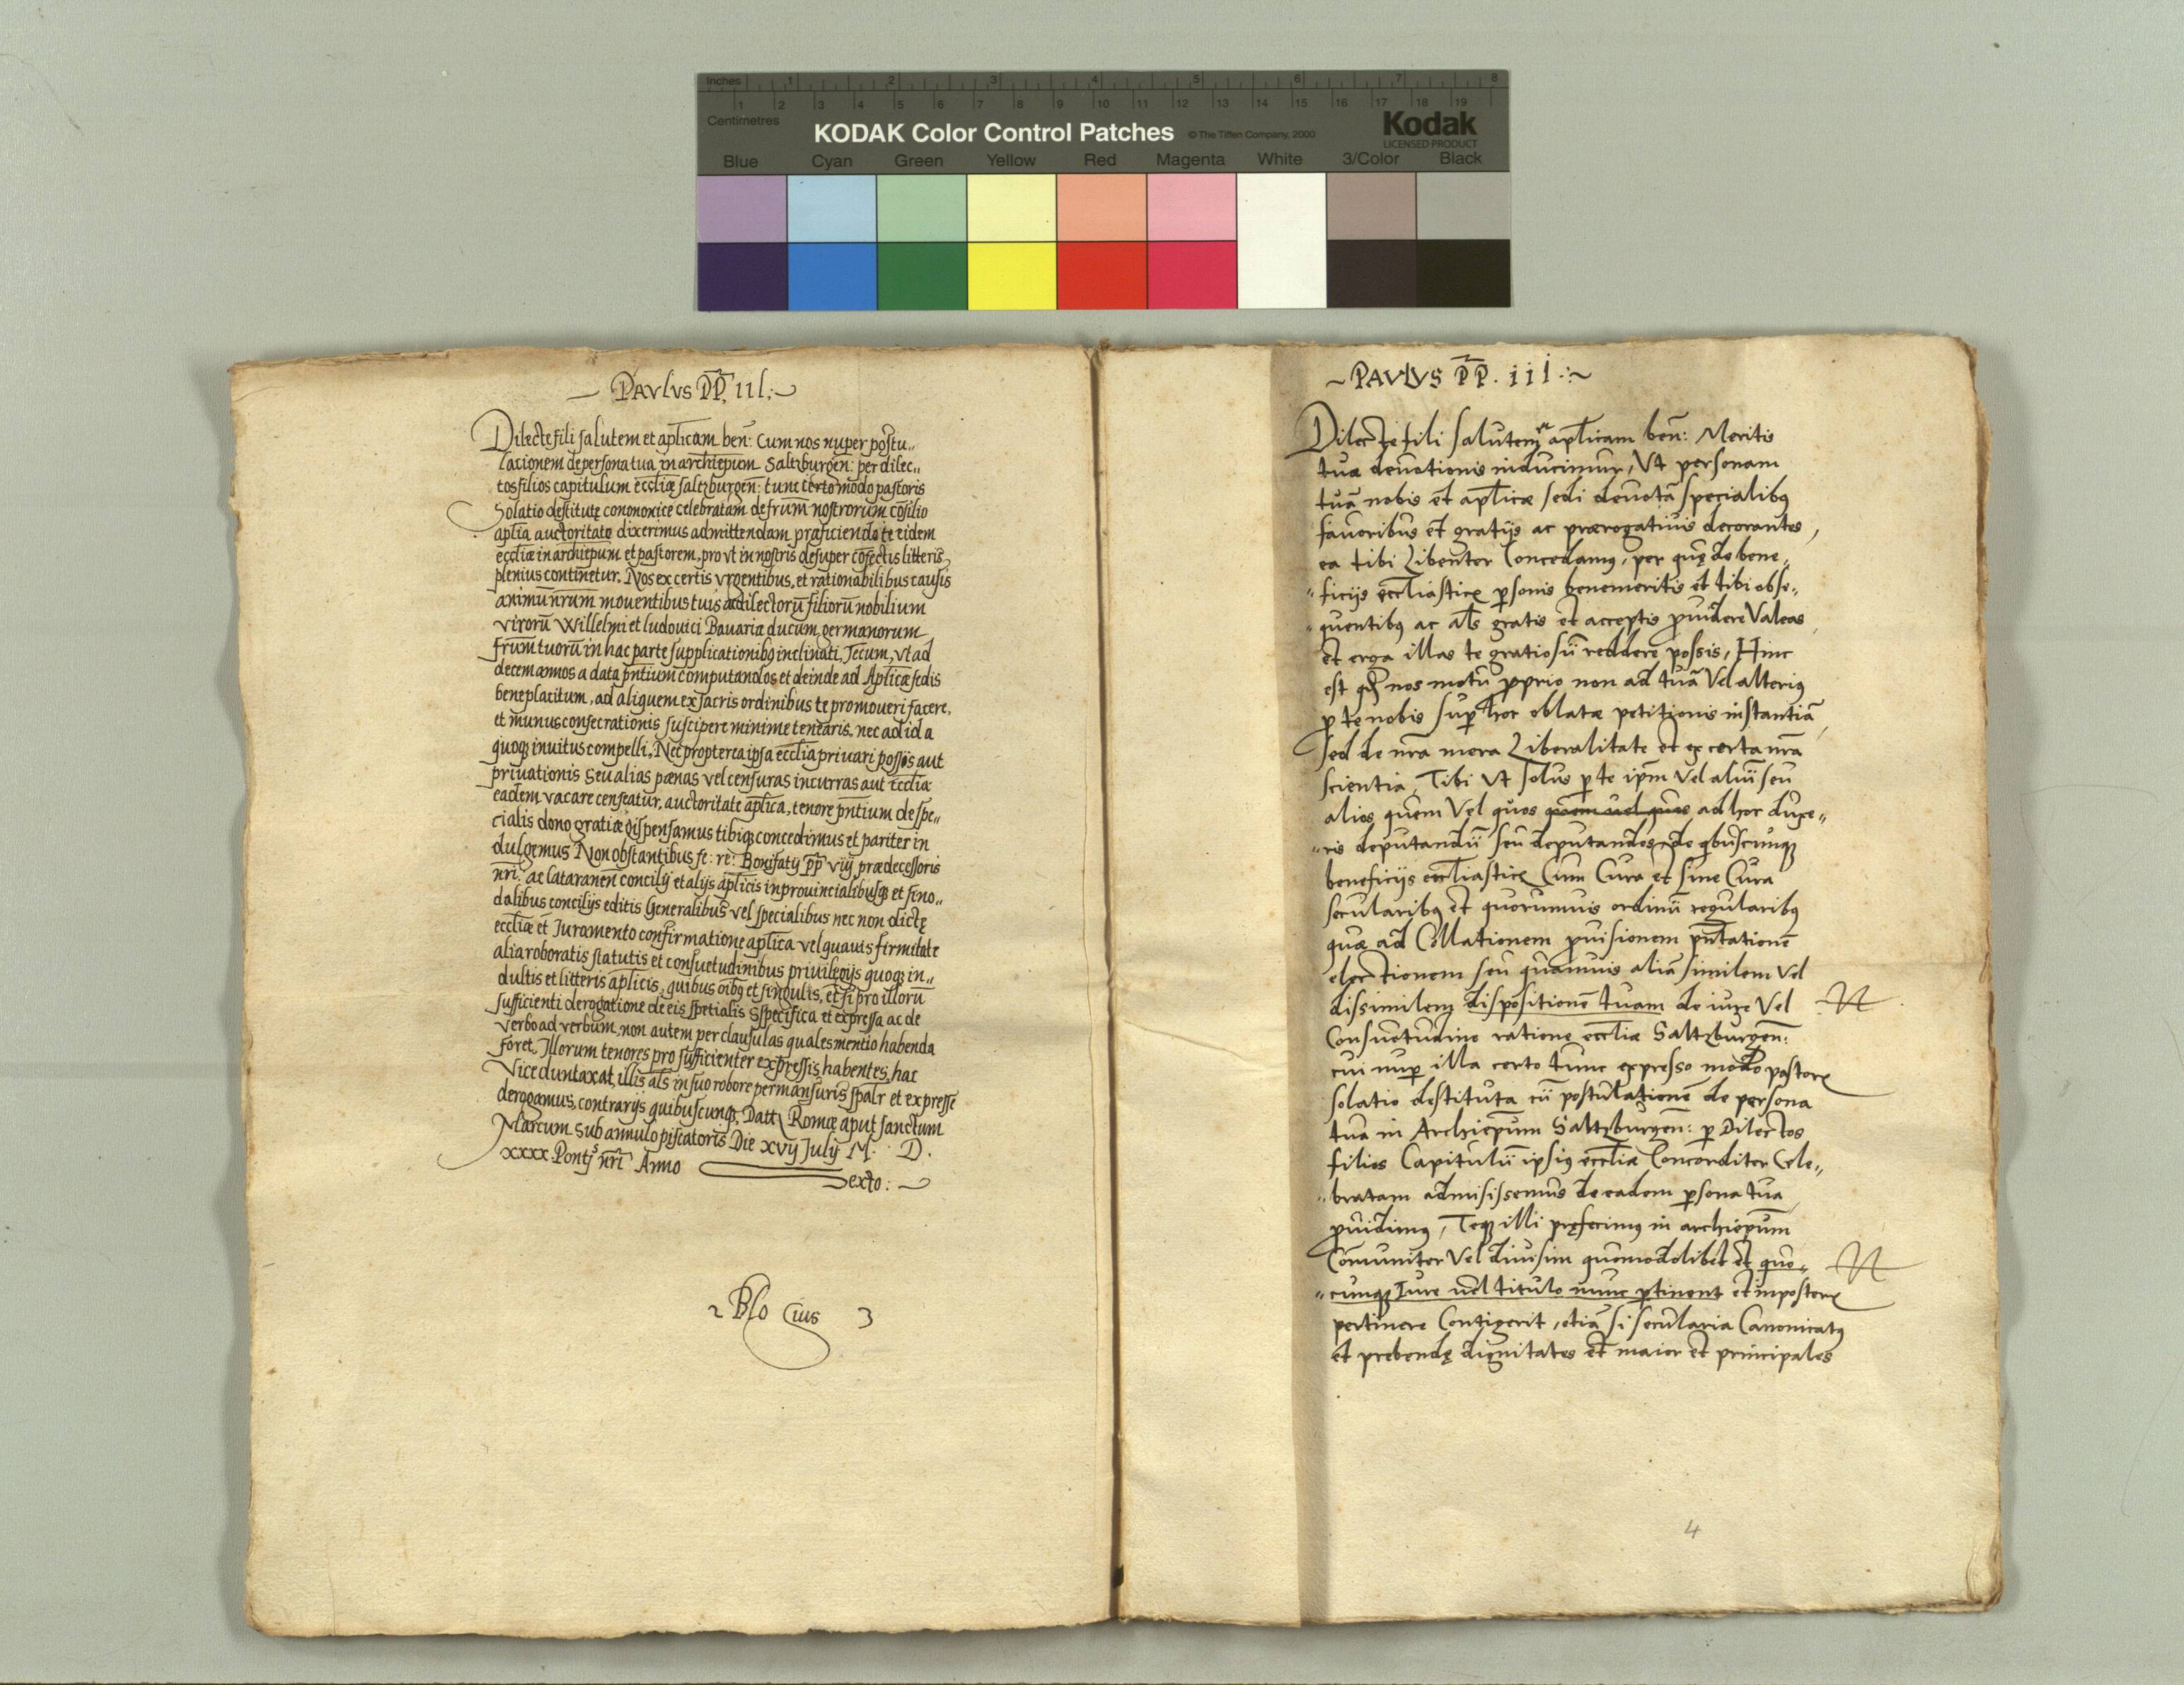 Inches 1 2 3 4 5 6 7 8
1 2 3 4 5 6 7 8 9 10 11 12 13 14 15 16 17 18 19
Centimetres
KODAK Color Control Patches © The Tiffen Company, 2000 Kodak
LICENSED PRODUCT
Blue Cyan Green Yellow Red Magenta White 3/Color Black
PAVLVS P̄P̄. III.
Dilecte fili salutem et ap̄licam ben̄: Cum nos nuper postu„
lacionem de persona tua in archiep̄um Saltzburgen̄: per dilec„
tos filios capitulum eccl̄iæ saltzburgen̄: tunc certo modo pastoris
Solatio destitutę cononoxice celebratam de fr̄um nostrorum cōsilio
ap̄lia auctoritate dixerimus admittendam præficiendo te eidem
eccl̄iæ in archiep̄um et pastorem, pro vt in nostris desuper cōfectis litteris
plenius continetur. Nos ex certis vrgentibus, et rationabilibus causis
animū nr̄um mouentibus tuis ac dilectorū filiorū nobilium
virorū Willelmi et ludouici Bauariæ ducum germanorum
fr̄um tuorū in hac parte supplicationibꝰ inclinati, Tecum, vt ad
decem annos a data pn̄tium computandos et deinde ad Ap̄licæ sedis
beneplacitum, ad aliquem ex sacris ordinibus te promoueri facere,
et munus consecrationis suscipere minime tenearis. nec ad id a
quoqȝ inuitus compelli, Nec propterea ipsa eccl̄ia priuari possis aut
priuationis Seu alias pænas vel censuras incurras aut Eccl̄ia
eadem vacare censeatur, auctoritate ap̄lica, tenore pn̄tium de spe„
cialis dono gratiæ dispensamus tibiqȝ concedimus et pariter in
dulgemus Non obstantibus fe: re: Bonifatij p̄p̄ viij prædecessoris
nr̄i: ac Lataranen̄ concilij et alijs ap̄licis in prouincialibusqȝ et sino„
dalibus concilijs editis Generalibus vel specialibus nec non dictę
eccl̄iæ et Juramento confirmatione ap̄lica vel quauis firmitate
alia roboratis statutis et consuetudinibus priuilegijs quoqȝ in„
dultis et litteris ap̄licis, quibus oībꝰ et singulis, et si pro illorū
sufficienti derogatione de eis spetialis Sspecifica et expressa ac de
verbo ad verbum, non autem per clausulas quales mentio habenda
foret, Illorum tenores pro sufficienter expressis habentes, hac
Vice duntaxat, illis al̄s in suo robore permansuris spal̄r et expresse
derogamus, contrarijs quibuscunqȝ. Datt Romæ aput sanctum
Marcum Sub annulo piscatoris Die xvij Julij M. D.
xxxx Pontȷ̄s nr̄i Anno
Sexto:
Blo Cius
PAVLVS P̄P̄. iii
Dilecte fili salutem et ap̄licam ben̄: Meritis
tuæ deuotionis inducimur, Vt personam
tuā nobis et ap̄licæ sedi deuotā specialibꝰ
fauoribus et gratijs ac prærogatiuis decorantes,
ea tibi Libenter Concedamꝰ, per quę de bene„
„ficijs eccl̄iasticꝭ ꝑsonis benemeritis et tibi obse„
„quentibꝰ ac al̄s gratis et acceptis ꝓuidere Valeas,
et erga illas te gratiosū reddere possis, Hinc
est qd̄ nos motu ꝓprio non ad tuā Vel alteriꝰ
ꝓ te nobis suꝑ hoc oblatæ petitionis instantiā,
sed de nr̄a mera Liberalitate et ex certa nr̄a
scientia, Tibi Vt solus ꝑ te ip̄m Vel aliū seu
alios quem Vel quos quem vel quos ad hoc duxe„
„ris deputandū seu deputandos, de qbuscunqȝ
beneficijs eccl̄iasticꝭ Cum Cura et sine Cura
secularibꝰ et quorumuis ordinū regularibꝰ
quæ ad Collationem ꝓuisionem pn̄tationē
electionem seu quamuis aliā similem Vel
dissimilem dispositionē tuam de iure Vel
Consuetudine ratione eccl̄iæ Saltzburgen̄:
cui nuꝑ illa certo tunc expresso modo pastorꝭ
solatio destituta cū postulationē de persona
tua in Archiep̄um Saltzburgen̄: ꝑ Dilectos
filios Capitulū ipsiꝰ eccl̄iæ Concorditer Cele„
„bratam admisissemus de eadem ꝑsona tua
ꝓuidimꝰ, Teqȝ illi pręfecimꝰ in archiep̄um
Com̄uniter Vel diuisim quomodolibet et quo„
„cunqȝ Iure uel titulo nunc ꝑtinent et inposterꝭ
pertinere Contigerit, etiā si secularia Canonicatꝰ
et prebendę dignitates et maior et principales
4